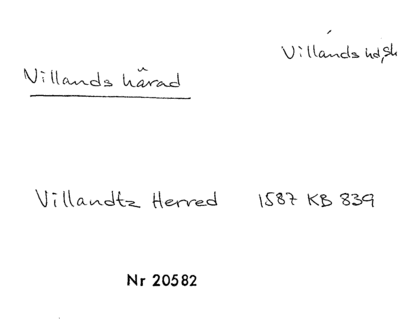 Villands hd, Sk
Villands härad
Villandtz Herred 1587 KB 839
Nr 20582